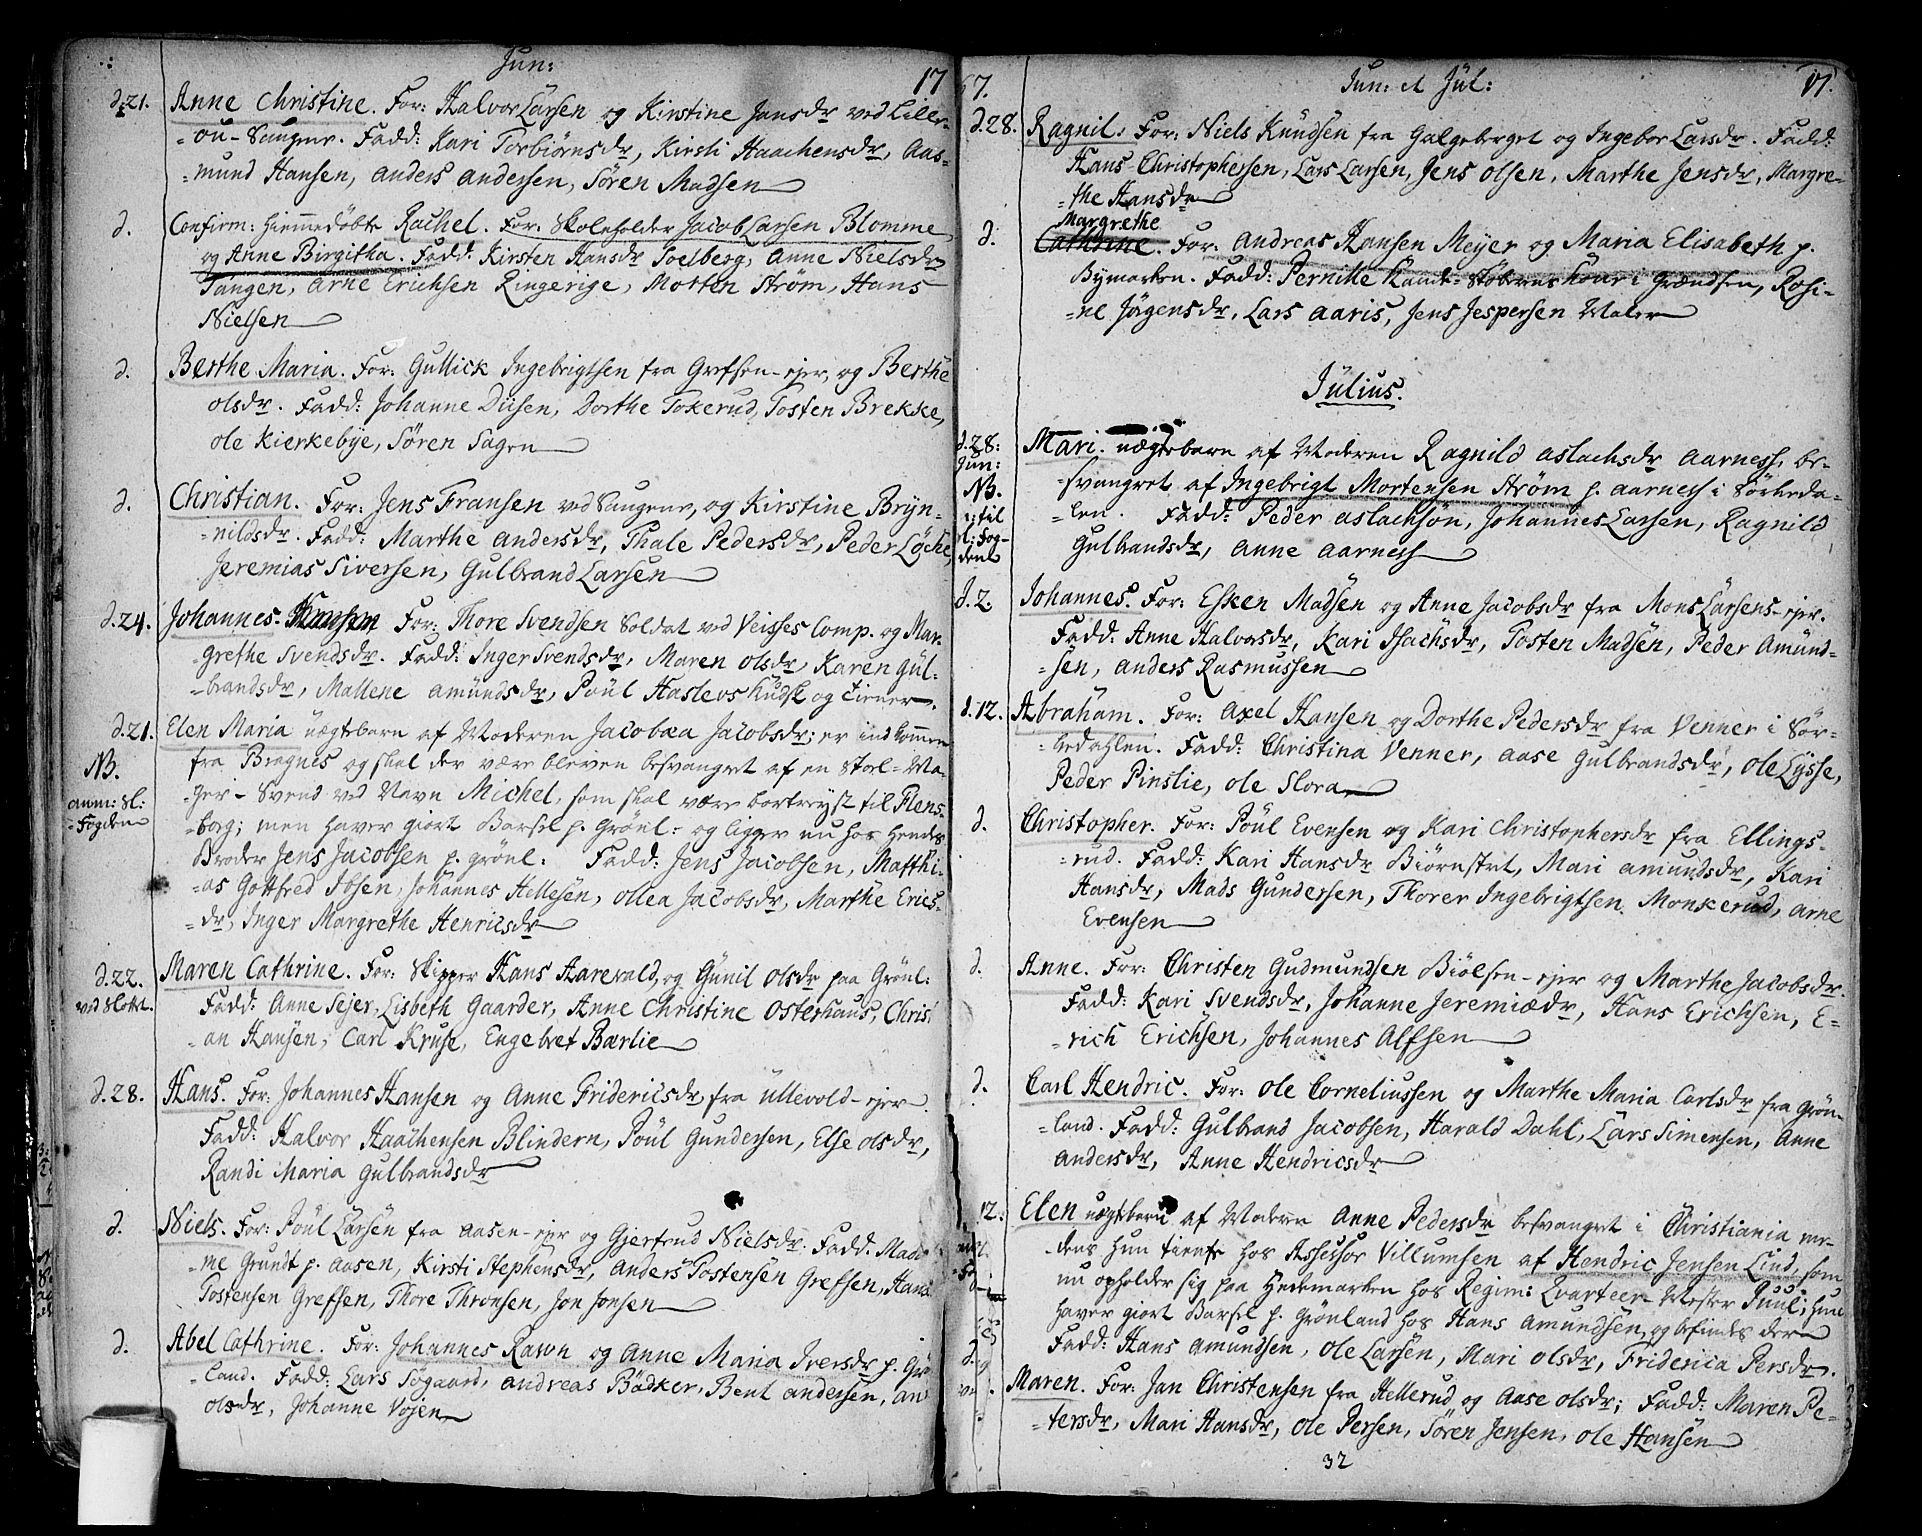 Jun: 17
d.21. Anne Christine. For: Halvor Larsen og Kirstine Jansdr ved Lille-
-ou-Saugene. Fadd: Kari Torbiörnsdr, Kirsti Haachensdr, Aas-
-mund Hansen, Anders Andersen, Sören Madsen
d. Confirm: hiemmedöbte Rachel. For: Skoleholder Jacob Larsen Blomme,
og Anne Birgitha. Fadd: Kirsten Hansdr Soelberg, Anne Nielsdr
Tangen, Arne Erichsen Ringerige, Morten Strøm, Hans
Nielsen
d. Berthe Maria. For: Gullick Ingebrigtsen fra Grefsen-ejer, og Berthe
olsdr. Fadd: Johanne Diisen, Dorthe Tokerud, Tosten Brekke,
ole Kierkebye, Sören Sagen
d. Christian. For: Jens Fransen ved Saugene, og Kirstine Bryn-
-nildsdr. Fadd: Marthe Andersdr, Thale Pedersdr, Peder Löche,
Jeremias Siversen, Gulbrand Larsen
d.24. Johannes. For: Thore Svendsen Soldat ved Veisses Comp. og Mar-
-grethe Svendsdr. Fadd: Inger Svendsdr, Maren olsdr, Karen Gul-
-brandsdr, Mallene Amundsdr, Poul Haslevs Kudsk og Tiener.
d.21. Elen Maria uægtebarn af Moderen Jacobæa Jacobsdr; er indkommen
NB. fra Bragnes og skal der være bleven besvangret af en Stoel-Ma-
anm: Sl: -ger-Svend ved Navn Michel, som skal være bortreyst til Flens-
-Fogden -borg; men haver giort Barsel p. Grönl: og ligger nu hos hendes
Broder Jens Jacobsen p. grönl: Fadd: Jens Jacobsen, Matthi-
-as Gottfred Ibsen, Johannes Hellesen, ollea Jacobsdr, Marthe Erics-
-dr, Inger Margrethe Henricsdr
d.22. Maren Cathrine. For: Skipper Hans Aarevald, og Gunil olsdr paa Grönl:
ved Slott. Fadd: Anne Sejer, Lisbeth Gaarder, Anne Christine Osterhaus, Christi
-an Hansen, Carl Kruse, Engebret Bærlie
d.28. Hans. For: Johannes Hansen og Anne Fridericsdr fra Ullevold-ejer.
Fadd: Halvor Haachensen Blindern, Poul Gundersen, Else olsdr,
Randi Maria Gulbrandsdr
d. Niels. For: Poul Larsen fra Aasen-ejer og Gjertrud Nielsdr. Fadd: Mada-
-me Grundt p. Aasen, Kirsti Stephensdr, Anders Tostensen Grefsen, Hans
Tostensen Grefsen, Thore Thronsen, Jon Jonsen
d. Abel Cathrine. For: Johannes Rawn og Anne Maria Iversdr p. Grön
-land. Fadd: Lars Sögaard, Andreas Bödker, Bent Andersen, An
olsdr, Johanne Vosen
67. Jun: et Jul: 17.
d.28. Ragnil. For: Niels Knudsen fra Galgeberget og Ingebor Larsdr. Fadd:
Hans Christophersen, Lars Larsen, Jens olsen, Marthe Jensdr, Margre-
-the Hansdr
Margrethe
d. Cathrine. For: Andreas Hansen Meyer og Maria Elisabeth p.
Bymarken. Fadd: Pernille Kandestöberens Kone i Grændsen, Rosi-
-ne Jörgensdr, Lars Aaris, Jens Jespersen Maler
Julius.
d.28: Mari. uægtebarn af Moderen Ragnild Aslachsdr Aarness, be-
Jun: -svangret af Ingebrigt Mortensen Strøm p. Aarness i Sörkeda-
NB. -len. Fadd: Peder Aslachsön, Johannes Larsen, Ragnild
til Gulbrandsdr, Anne Aarness
Fog-
dens
d.2. Johannes. For: Esken Madsen og Anne Jacobsdr fra Mons Larsens-ejer.
Fadd: Anne Halvorsdr, Kari Isachsdr, Tosten Madsen, Peder Amund-
-sen, Anders Rasmussen
d.12. Abraham. For: Axel Hansen og Dorthe Pedersdr fra Venner i Sör-
-kedahlen. Fadd: Christina Venner, Aase Gulbrandsdr, Ole Lysse,
Peder Pinslie, ole Slora
d. Christopher. For: Poul Evensen og Kari Christophersdr fra Ellings-
-rud. Fadd: Kari Hansdr Biörnstet, Mari Amundsdr, Kari
Hansdr, Mads Gundersen, Thorer Ingebrigtsen Monkerud, Arne
Evensen
d. Anne. For: Christen Gudmundsen Biölsen-ejer og Marthe Jacobsdr.
Fadd: Kari Svendsdr, Johanne Jeremiædr, Hans Erichsen, E-
-rich Erichsen, Johannes Alfsen
d. Carl Hendric. For: Ole Corneliussen og Marthe Maria Carlsdr fra Grön-
-land. Fadd: Gulbrand Jacobsen, Harald Dahl, Lars Simensen, Anne
Andersdr, Anne Hendricsdr
12. Elen uægtebarn af Moderen Anne Pedersdr besvangret i Christiania me-
-dens hun tiente hos Assessor Villumsen af Hendric Jensen Lind, som
nu opholder sig paa Hedemarken hos Regim: Qvarteer-Mester Puul; hun
haver giort Barsel p. Grönland hos Hans Amundsen, og befindes der
Fadd: Hans Amundsen, ole Larsen, Mari olsdr, Friderica Persdr.
d. Maren. For: Jan Christensen fra Hellerud og Aase olsdr; Fadd: Maren Pe-
-tersdr, Mari Hansdr, ole Persen, Sören Jensen, ole Hansen
32